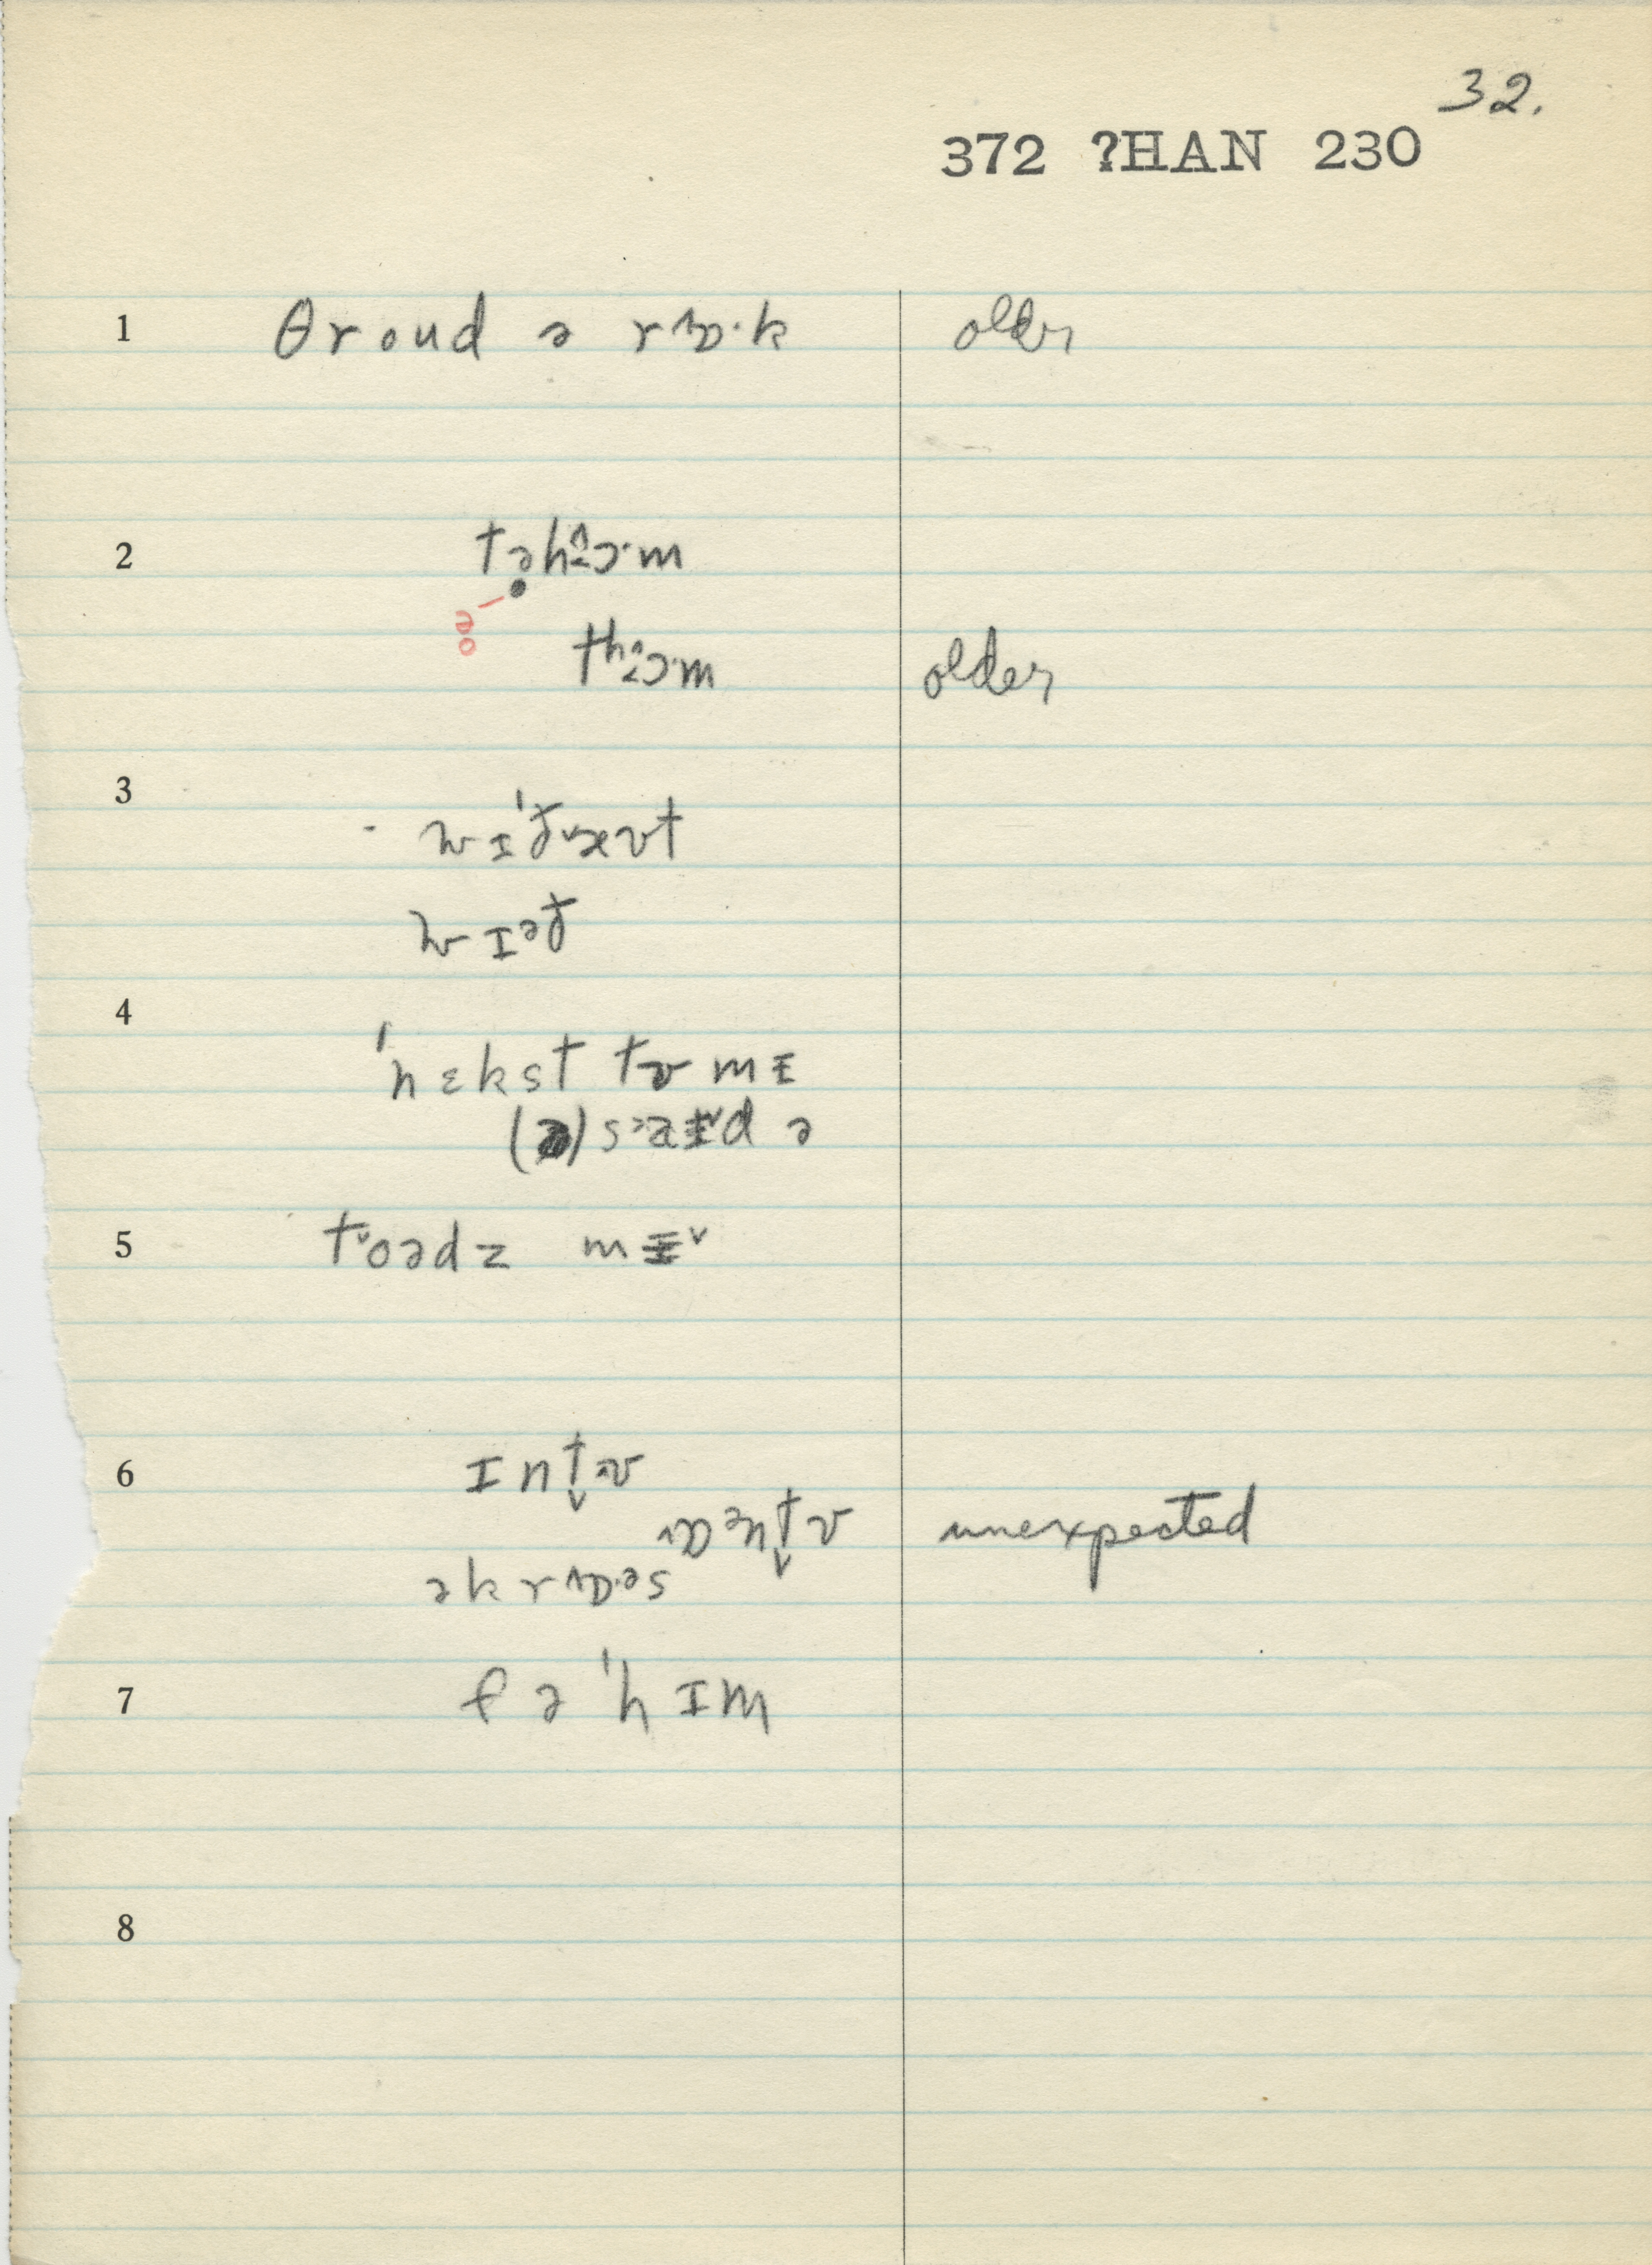 32.
372 ?HAN 230
1 θroud ə rɒ·k older
2 təhɔ·m
oə
thɔ·m older
3 wɪ'ðəut
wɪəð
4 'nɛkst tʊ mɪ
(ə) saɪd ə
5 toədz mɪ
6 ɪntʊ
ɒəntʊ unexpected
əkrɒ·əs
7 fə 'hɪm
8